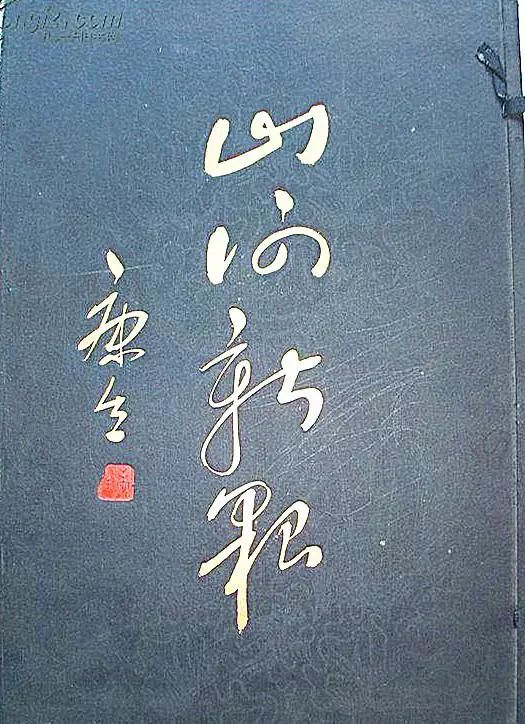 山河新貌
康生